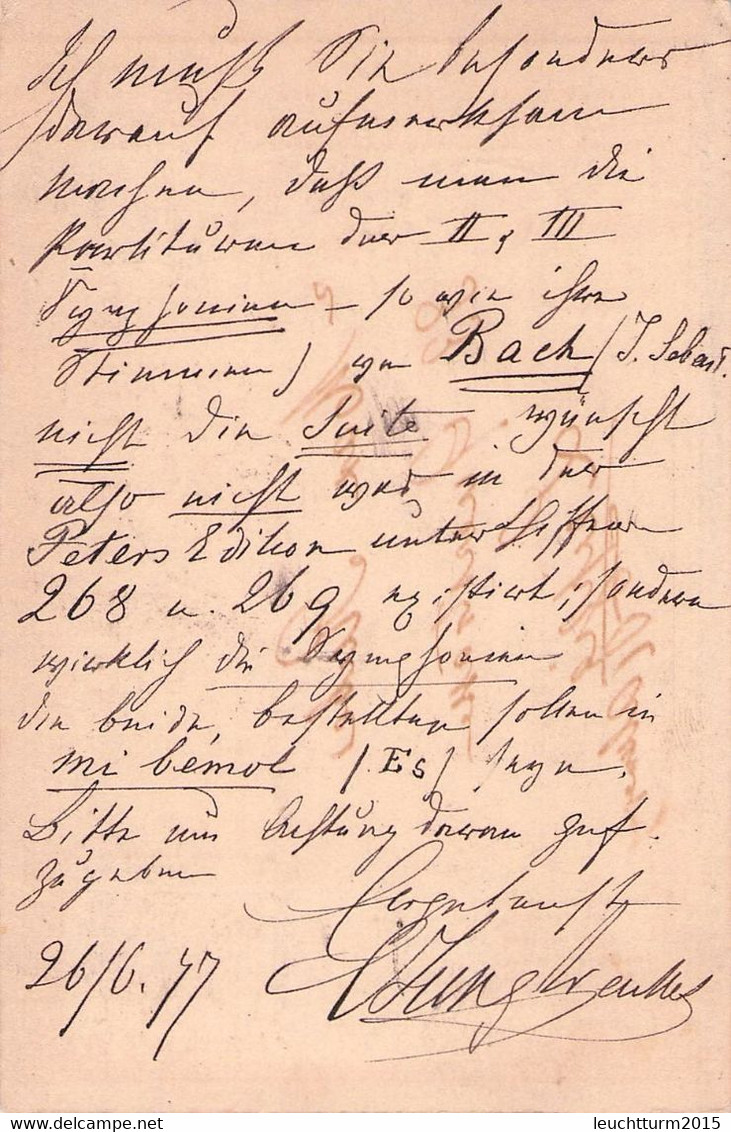 Ich muß Sie besonders
darauf aufmerksam
machen, daß man die
Partituren der II & III
Symphonien – so wie ihre
Stimmen) von Bach (J. Sebast.
nicht die Suite wünscht
also nicht was in der
Peters Edition unter Ziffern
268 u. 269 existirt, sondern
wirklich die Symphonien
die beide, bestellten sollen in
mi bémol (Es) seyn.
Bitte um Achtung daran gef.
zu geben
Ergebenst
26/6. 77
leuchtturm2015